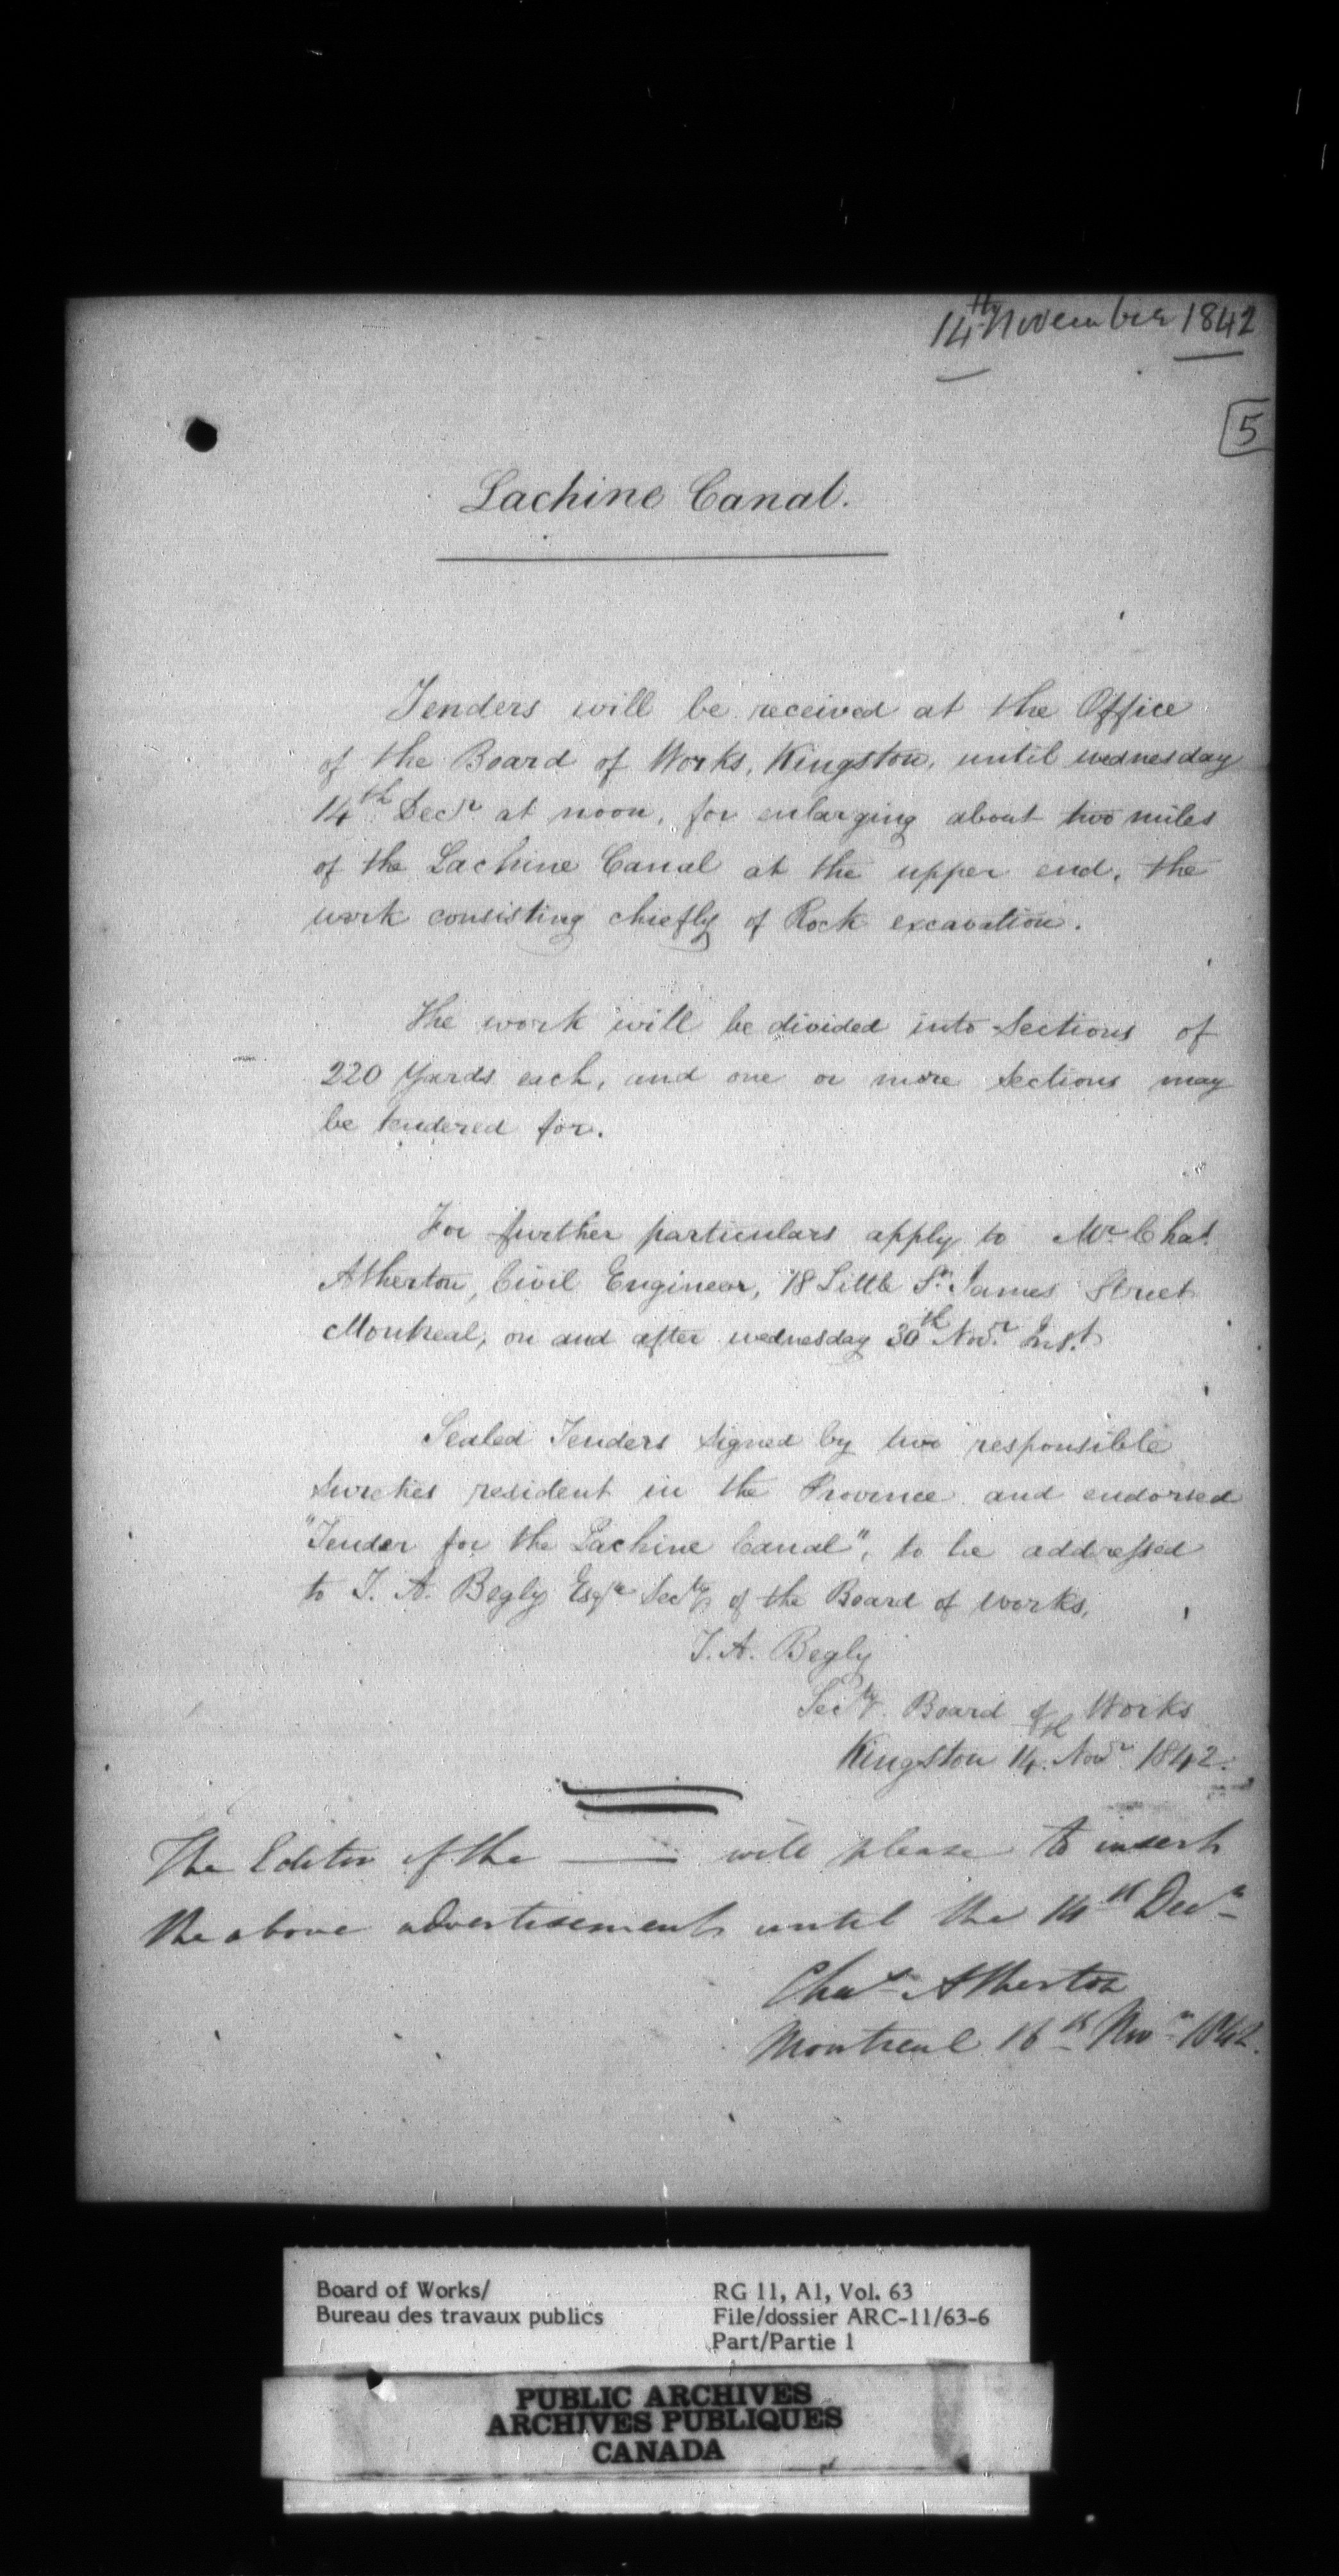 14th November 1842
5
Lachine Canal.
Tenders will be received at the Office
of the Board of Works, Kingston, until wednesday
14th Decr at noon, for enlarging about two miles
of the Lachine Canal at the upper end, the
work consisting chiefly of Rock excavation.
The work will be divided into Sections of
220 Yards each, and one or more Sections may
be tendered for.
For further particulars apply to Mr Chas.
Atherton, Civil Engineer, 18 Little St. James Street
Montreal, on and after wednesday 30th Novr Inst.
Sealed Tenders signed by two responsible
Sureties resident in the Province and endorsed
"Tender for the Lachine Canal", to be addressed
to T. A. Begly Esqre Secty of the Board of Works,
T. A. Begly
Secty. Board of Works
Kingston 14th Novr 1842.
The Editor of the —— will please to insert
the above advertisement until the 14th Decr
Chas Atherton
Montreal 16th Novr 1842.
Board of Works/
Bureau des travaux publics
RG 11, A1, Vol. 63
File/dossier ARC-11/63-6
Part/Partie 1
PUBLIC ARCHIVES
ARCHIVES PUBLIQUES
CANADA